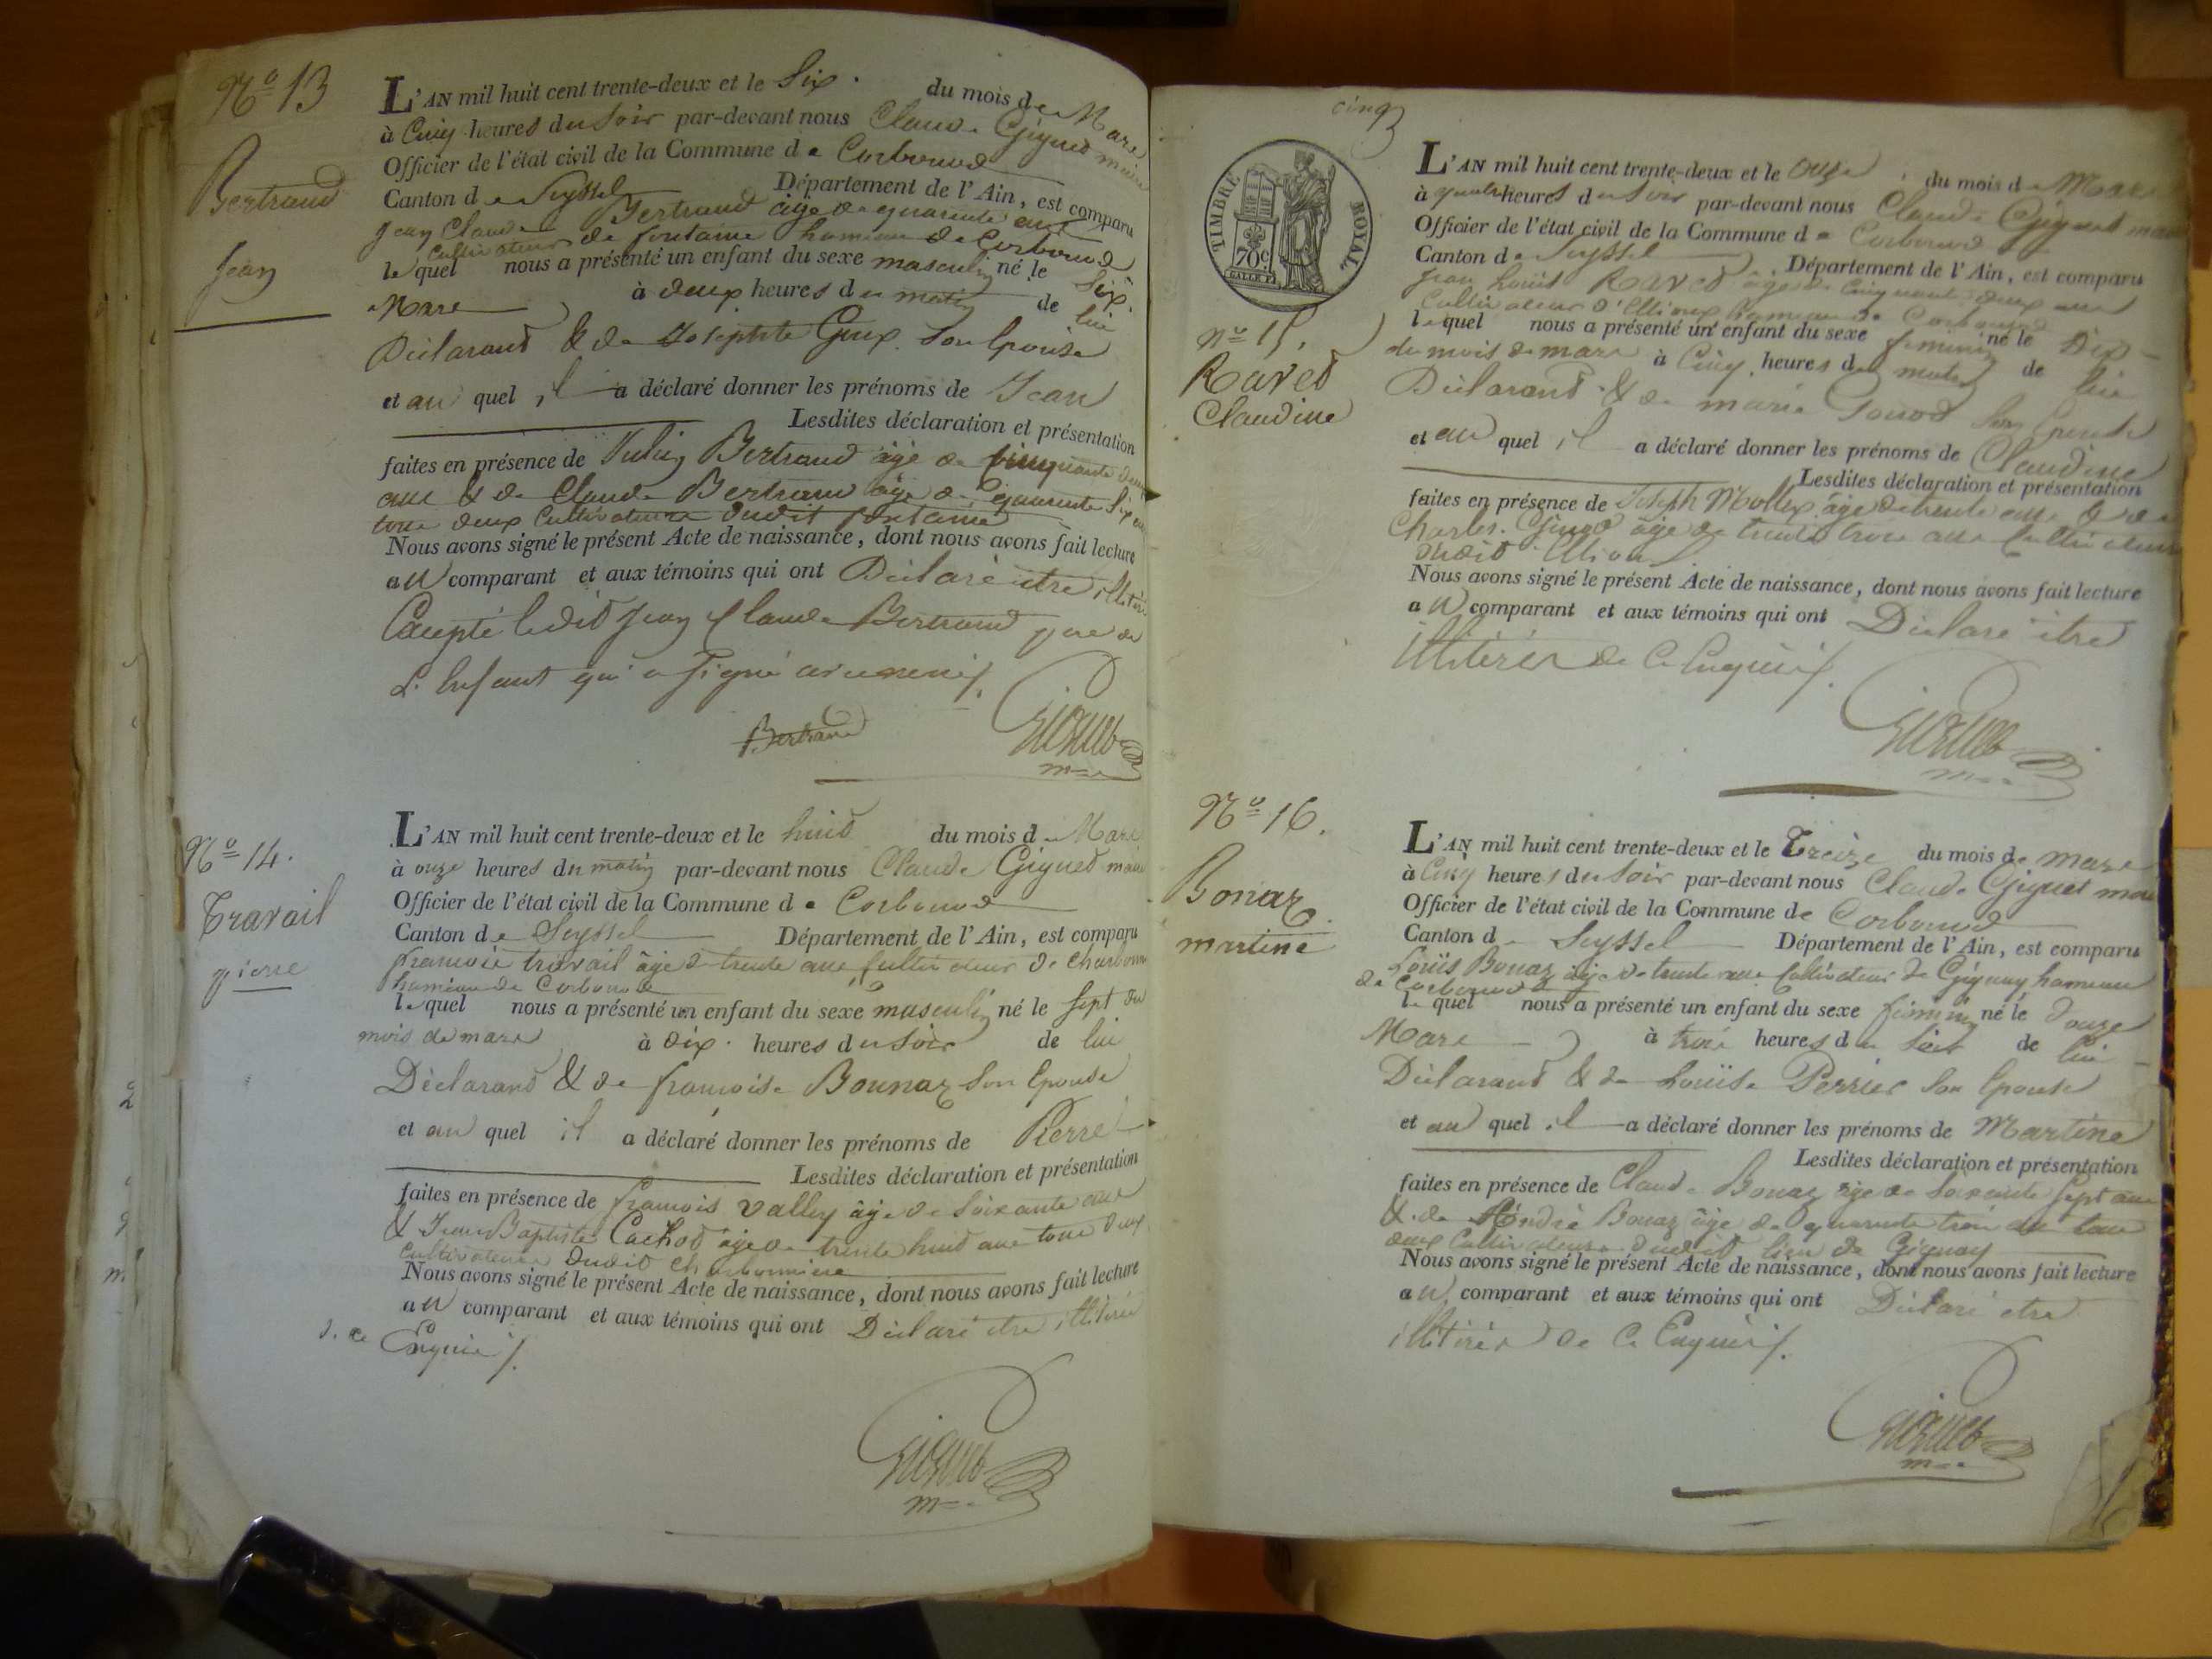 N.º 13
Bertrand
Jean
L'AN mil huit cent trente-deux et le Six du mois de Mars
à Cinq heures du Soir par-devant nous Claude Giguet maire
Officier de l'état civil de la Commune de Corbonod
Canton de Seyssel Département de l'Ain, est comparu
Jean Claude Bertrand âgé de quarante ans
Cultivateur de fontaine hameau de Corbonod
lequel nous a présenté un enfant du sexe masculin né le Six
Mars à deux heures du matin de lui
Déclarant & de Josephte Gux Son Epouse
et au quel il a déclaré donner les prénoms de Jean
Lesdites déclaration et présentation
faites en présence de Bertrand âgé de cinquante
ans & de Claude Bertrand âgé de quarante Six ans
tous deux Cultivateurs dudit fontaine
Nous avons signé le présent Acte de naissance, dont nous avons fait lecture
au comparant et aux témoins qui ont Déclaré être illitérés
Excepté ledit Jean Claude Bertrand père de
L'Enfant qui a Signé
Bertrand
Giguet
N.º 14.
Travail
pierre
L'AN mil huit cent trente-deux et le huit du mois de Mars
à onze heures du matin par-devant nous Claude Giguet maire
Officier de l'état civil de la Commune de Corbonod
Canton de Seyssel Département de l'Ain, est comparu
françois travail âgé de trente ans Cultivateur de Charbonnière
hameau de Corbonod
lequel nous a présenté un enfant du sexe masculin né le Sept du
mois de mars à dix heures du Soir de lui
Déclarant & de françoise Bounaz Son Epouse
et au quel il a déclaré donner les prénoms de Pierre
Lesdites déclaration et présentation
faites en présence de françois Vallin âgé de Soixante ans
& Jean Baptiste Cachod âgé de trente huit ans tous deux
Cultivateurs dudit Charbonnière
Nous avons signé le présent Acte de naissance, dont nous avons fait lecture
au comparant et aux témoins qui ont Déclaré être illitérés
de ce Enquis
Giguet
cinq
TIMBRE ROYAL
70c
N.º 15.
Raved
Claudine
L'AN mil huit cent trente-deux et le onze du mois de Mars
à quatre heures du Soir par-devant nous Claude Giguet maire
Officier de l'état civil de la Commune de Corbonod
Canton de Seyssel Département de l'Ain, est comparu
Jean Louis Raved âgé de cinquante deux ans
Cultivateur hameau de Corbonod
lequel nous a présenté un enfant du sexe feminin né le Dix
du mois de mars à Cinq heures du matin de lui
Déclarant & de marie Gonod Son Epouse
et au quel il a déclaré donner les prénoms de Claudine
Lesdites déclaration et présentation
faites en présence de Joseph Mollex âgé de trente ans & de
Charles âgé de trente trois ans Cultivateurs
dudit
Nous avons signé le présent Acte de naissance, dont nous avons fait lecture
au comparant et aux témoins qui ont Déclaré être
illitérés de Ce Enquis
Giguet
N.º 16.
Bonaz
martine
L'AN mil huit cent trente-deux et le Treize du mois de mars
à Cinq heures du Soir par-devant nous Claude Giguet maire
Officier de l'état civil de la Commune de Corbonod
Canton de Seyssel Département de l'Ain, est comparu
Louis Bonaz âgé de trente ans Cultivateur de Gignay hameau
de Corbonod
lequel nous a présenté un enfant du sexe feminin né le Douze
Mars à trois heures du Soir de lui
Déclarant & de Louise Perrier Son Epouse
et au quel il a déclaré donner les prénoms de Martine
Lesdites déclaration et présentation
faites en présence de Claude Bonaz âgé de Soixante Sept ans
& de André Bonaz âgé de quarante trois ans tous
deux Cultivateurs dudit lieu de Gignay
Nous avons signé le présent Acte de naissance, dont nous avons fait lecture
au comparant et aux témoins qui ont Déclaré être
illitérés de Ce Enquis
Giguet